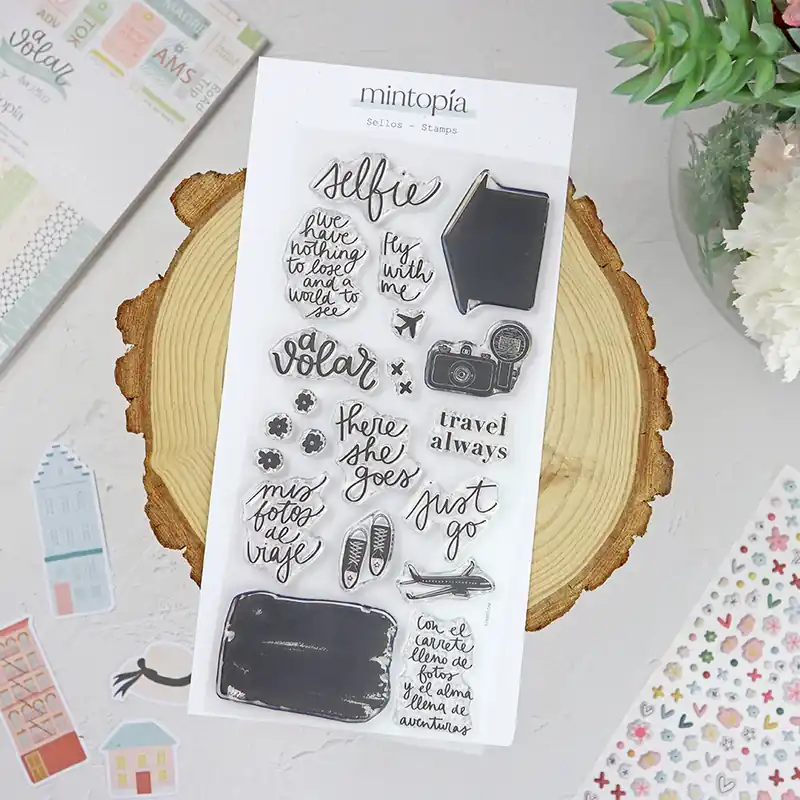 mintopía
Sellos - Stamps
selfie
we
have
nothing
to lose
and a
world to
see
Fly
with
me
a
volar
there
she
goes
travel
always
mis
fotos
de
viaje
just
go
con el
carrete
lleno de
fotos
y el alma
llena de
aventuras
ADV
TOK
AMS
ROAD
TRIP
a
volar